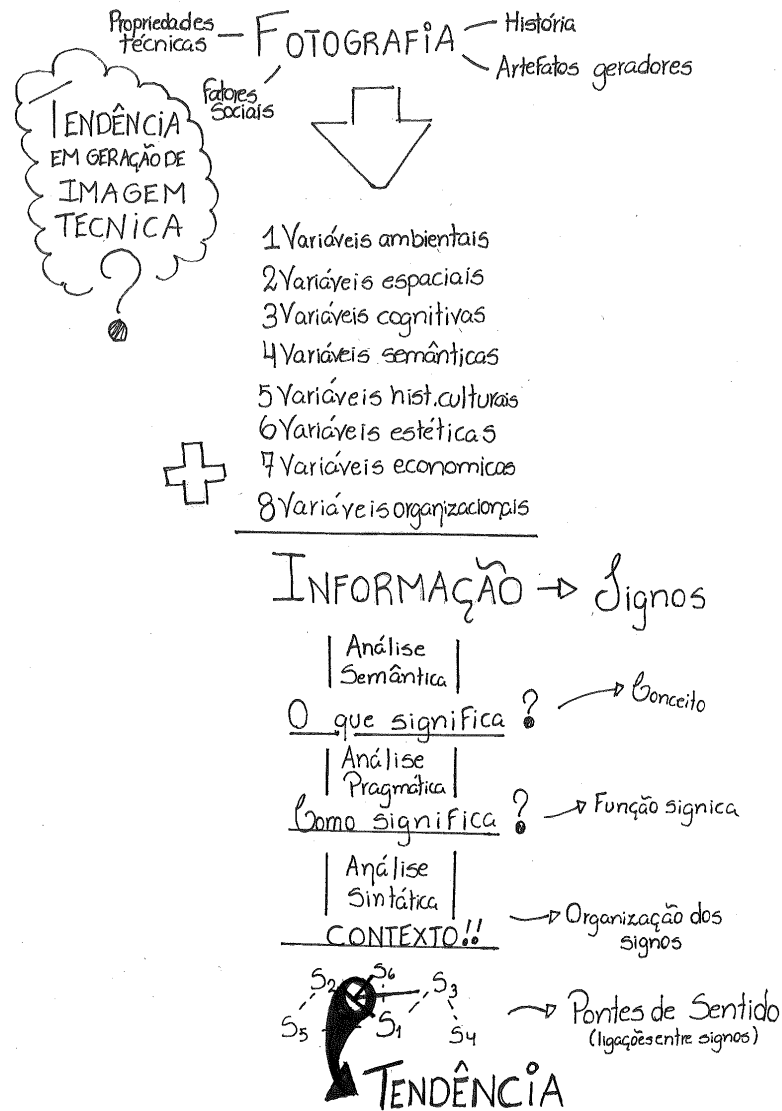 Propriedades
técnicas
FOTOGRAFIA
História
Artefatos geradores
fatores
sociais
TENDÊNCIA
EM GERAÇÃO DE
IMAGEM
TECNICA
?
1 Variáveis ambientais
2 Variáveis espaciais
3 Variáveis cognitivas
4 Variáveis semânticas
5 Variáveis hist.culturais
6 Variáveis estéticas
7 Variáveis economicas
8 Variáveis organizacionais
INFORMAÇÃO → Signos
Análise
Semântica
O que significa ? → Conceito
Análise
Pragmática
Como significa ? → Função signica
Análise
Sintática
CONTEXTO!!
→ Organização dos
signos
S2 S6 S3
S5 S1 S4
→ Pontes de Sentido
(ligações entre signos)
TENDÊNCIA